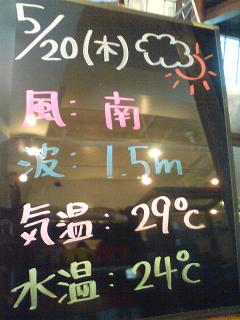 5/20(木)
風: 南
波: 1.5m
気温: 29℃
水温: 24℃